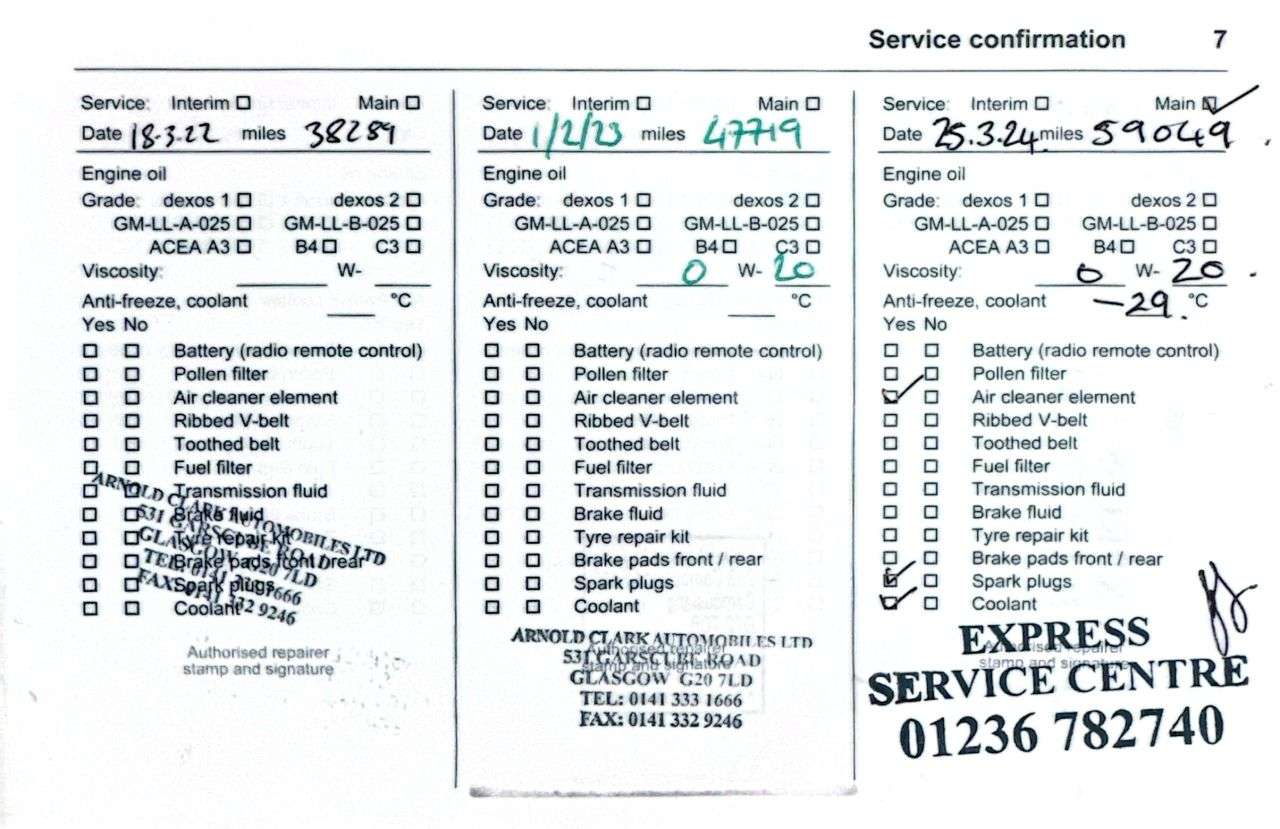 Service confirmation 7
Service: Interim ☐ Main ☐
Date 18.3.22 miles 38289
Engine oil
Grade: dexos 1 ☐ dexos 2 ☐
GM-LL-A-025 ☐ GM-LL-B-025 ☐
ACEA A3 ☐ B4 ☐ C3 ☐
Viscosity: W-
Anti-freeze, coolant °C
Yes No
☐ ☐ Battery (radio remote control)
☐ ☐ Pollen filter
☐ ☐ Air cleaner element
☐ ☐ Ribbed V-belt
☐ ☐ Toothed belt
☐ ☐ Fuel filter
☐ ☐ Transmission fluid
☐ ☐ Brake fluid
☐ ☐ Tyre repair kit
☐ ☐ Brake pads front / rear
☐ ☐ Spark plugs
☐ ☐ Coolant
ARNOLD CLARK AUTOMOBILES LTD
531 GARSCUBE ROAD
GLASGOW G20 7LD
TEL: 0141 333 1666
FAX: 0141 332 9246
Authorised repairer
stamp and signature
Service: Interim ☐ Main ☐
Date 1/2/23 miles 47719
Engine oil
Grade: dexos 1 ☐ dexos 2 ☐
GM-LL-A-025 ☐ GM-LL-B-025 ☐
ACEA A3 ☐ B4 ☐ C3 ☐
Viscosity: 0 W- 20
Anti-freeze, coolant °C
Yes No
☐ ☐ Battery (radio remote control)
☐ ☐ Pollen filter
☐ ☐ Air cleaner element
☐ ☐ Ribbed V-belt
☐ ☐ Toothed belt
☐ ☐ Fuel filter
☐ ☐ Transmission fluid
☐ ☐ Brake fluid
☐ ☐ Tyre repair kit
☐ ☐ Brake pads front / rear
☐ ☐ Spark plugs
☐ ☐ Coolant
ARNOLD CLARK AUTOMOBILES LTD
Authorised repairer
531 GARSCUBE ROAD
stamp and signature
GLASGOW G20 7LD
TEL: 0141 333 1666
FAX: 0141 332 9246
Service: Interim ☐ Main ☑
Date 25.3.24. miles 59049
Engine oil
Grade: dexos 1 ☐ dexos 2 ☐
GM-LL-A-025 ☐ GM-LL-B-025 ☐
ACEA A3 ☐ B4 ☐ C3 ☐
Viscosity: 0 W- 20
Anti-freeze, coolant -29. °C
Yes No
☐ ☐ Battery (radio remote control)
☐ ☐ Pollen filter
☑ ☐ Air cleaner element
☐ ☐ Ribbed V-belt
☐ ☐ Toothed belt
☐ ☐ Fuel filter
☐ ☐ Transmission fluid
☐ ☐ Brake fluid
☐ ☐ Tyre repair kit
☐ ☐ Brake pads front / rear
☑ ☐ Spark plugs
☑ ☐ Coolant
EXPRESS
Authorised repairer
stamp and signature
SERVICE CENTRE
01236 782740